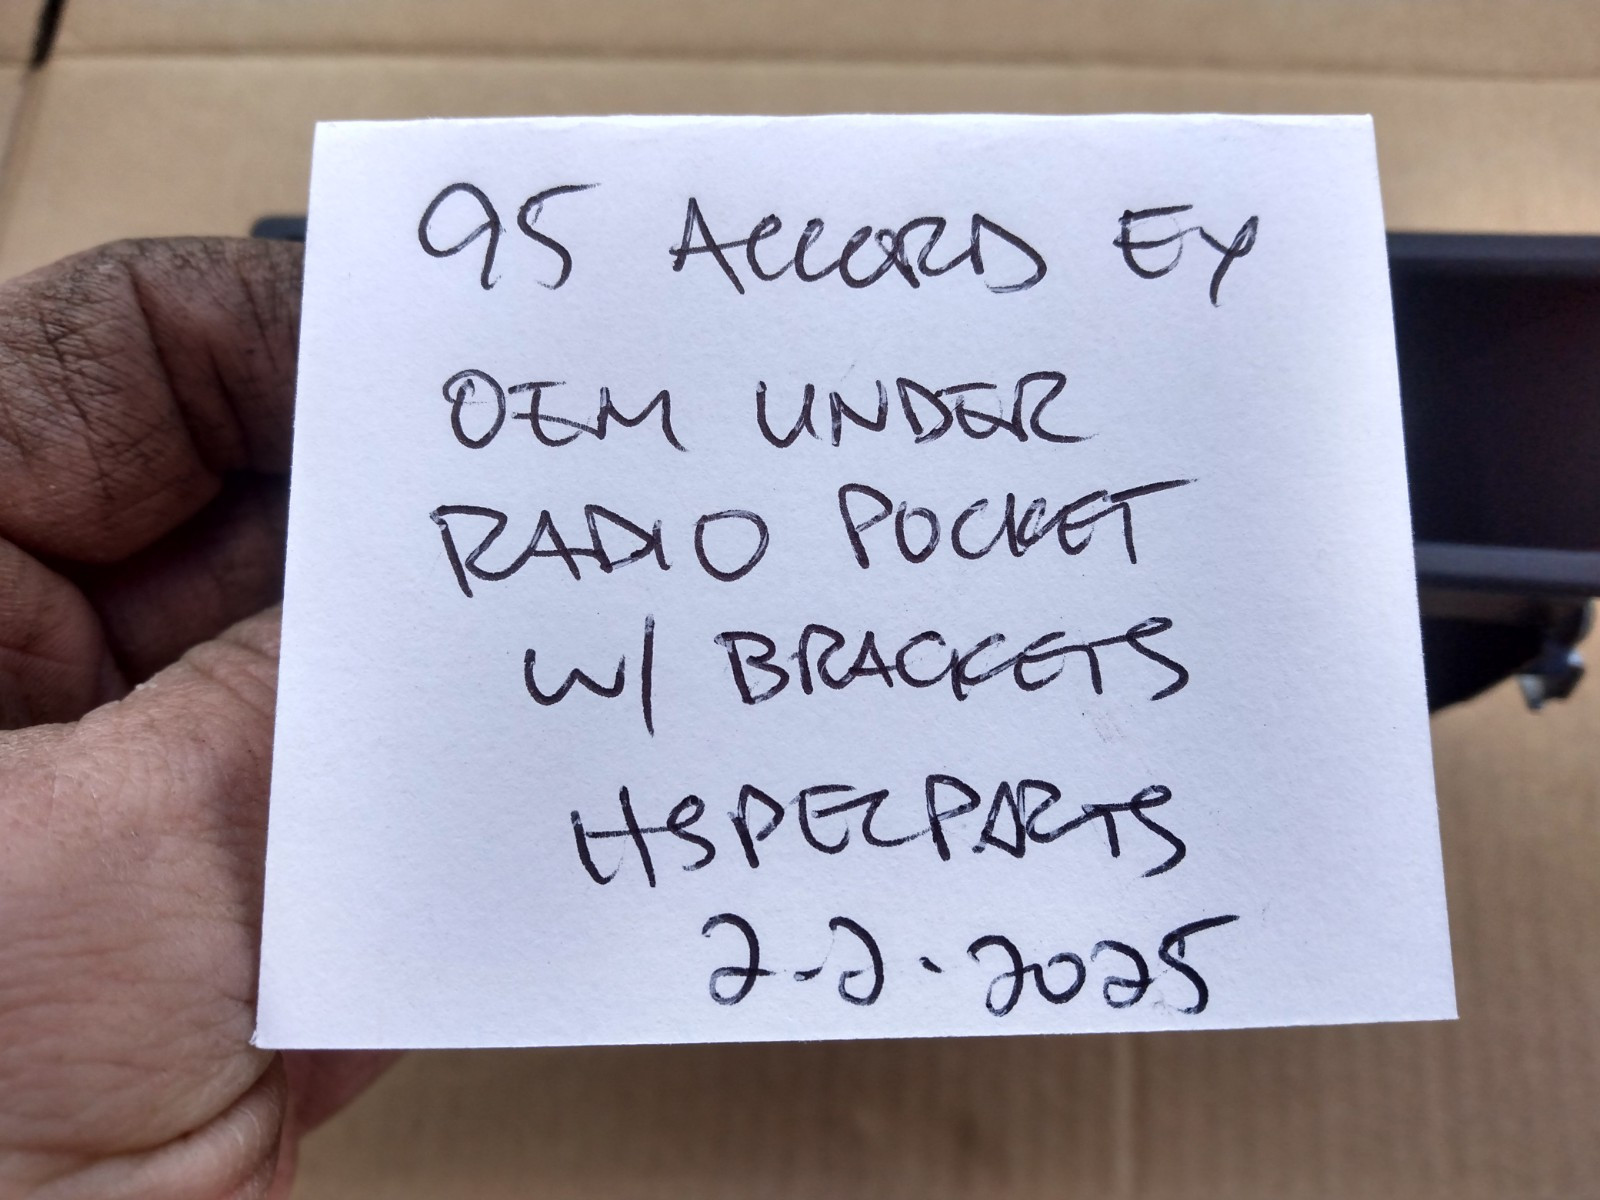 95 ACCORD EX
OEM UNDER
RADIO POCKET
W/ BRACKETS
HSPECPARTS
2-2-2025